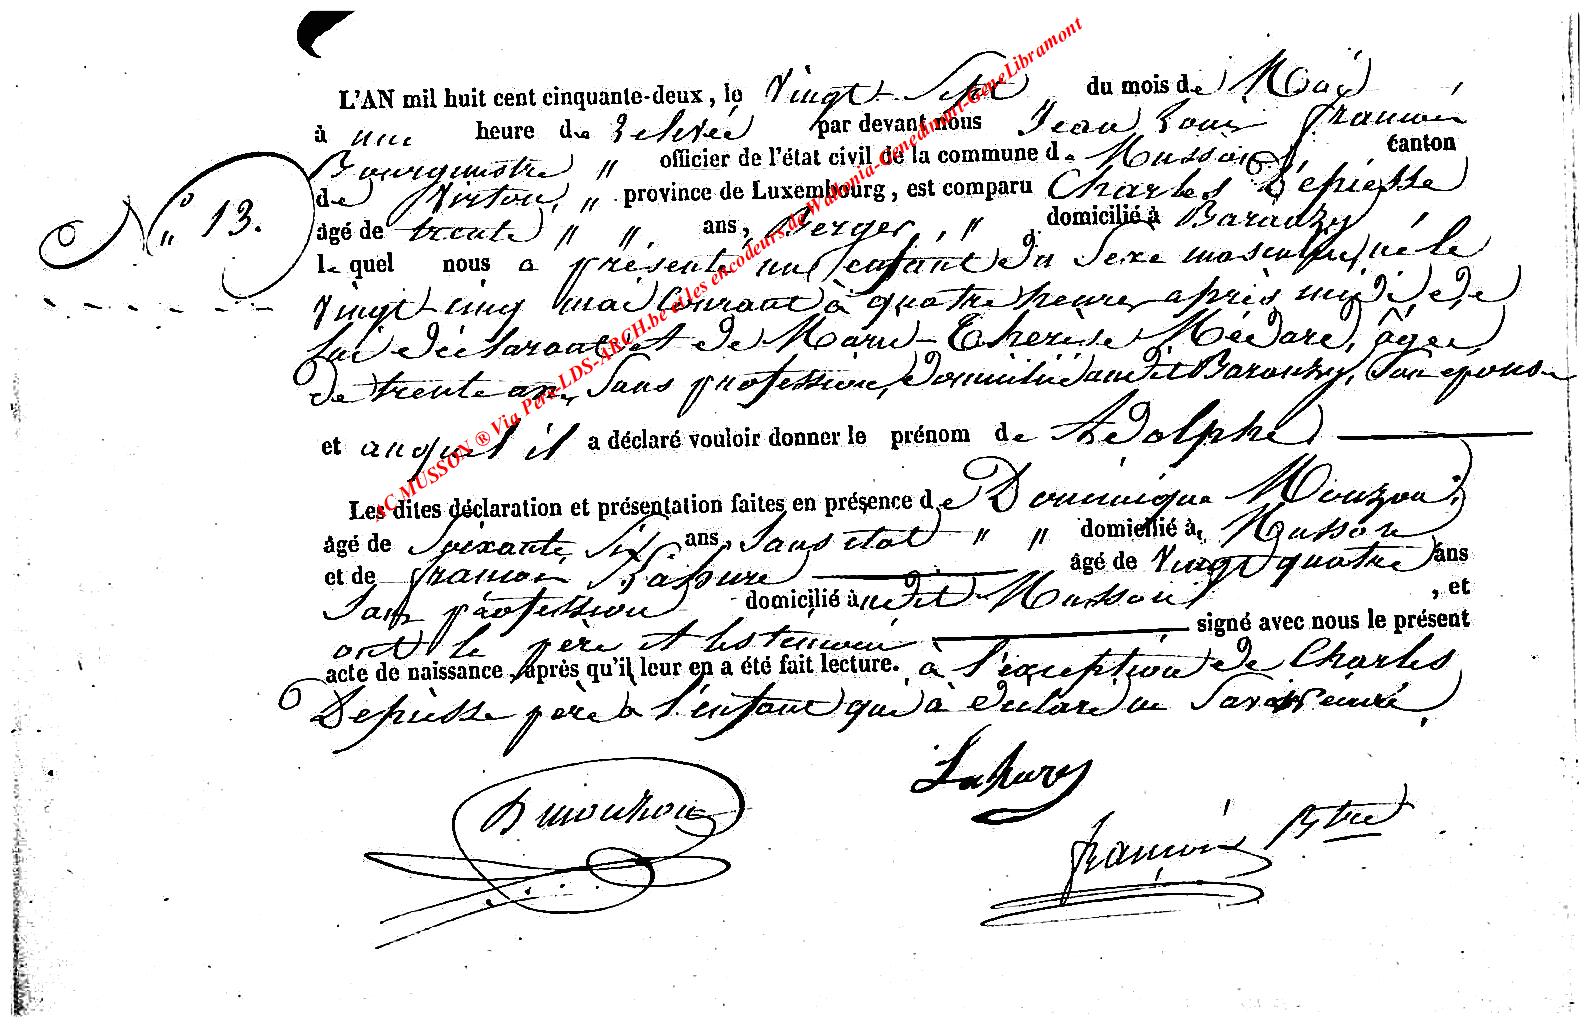 L'AN mil huit cent cinquante-deux, le Vingt Sept du mois de Maÿ
à une heure de Relevée par devant nous Jean Louis françois
Bourgmestre " officier de l'état civil de la commune de Musson, canton
de Virton, " province de Luxembourg, est comparu Charles Depiesse
N° 13.
âgé de trente " " ans, Berger, " domicilié à Baranzy
lequel nous a présenté un enfant du Sexe masculin, né le
Vingt cinq mai Courant à quatre heures après midi, de
lui déclarant et de Marie-Thérèse Médard, âgée
de trente ans, Sans profession, domiciliée audit Baranzy, Son épouse
et auquel il a déclaré vouloir donner le prénom de Adolphe
Les dites déclaration et présentation faites en présence de Dominique Mouzon,
âgé de Soixante Six ans, Sans état " " domicilié à Musson
et de françois Lahure âgé de Vingt quatre ans
Sans profession domicilié audit Musson, et
ont le père et les témoins signé avec nous le présent
acte de naissance, après qu'il leur en a été fait lecture. à l'exception de Charles
Depiesse père à l'enfant qui à déclaré ne Savoir écrire,
Lahure
D mouzon
françois Bgtre
AC MUSSON ® Via Pere-LDS-ARCH.be et les encodeurs de Wallonia-Genedinant-GeneLibramont